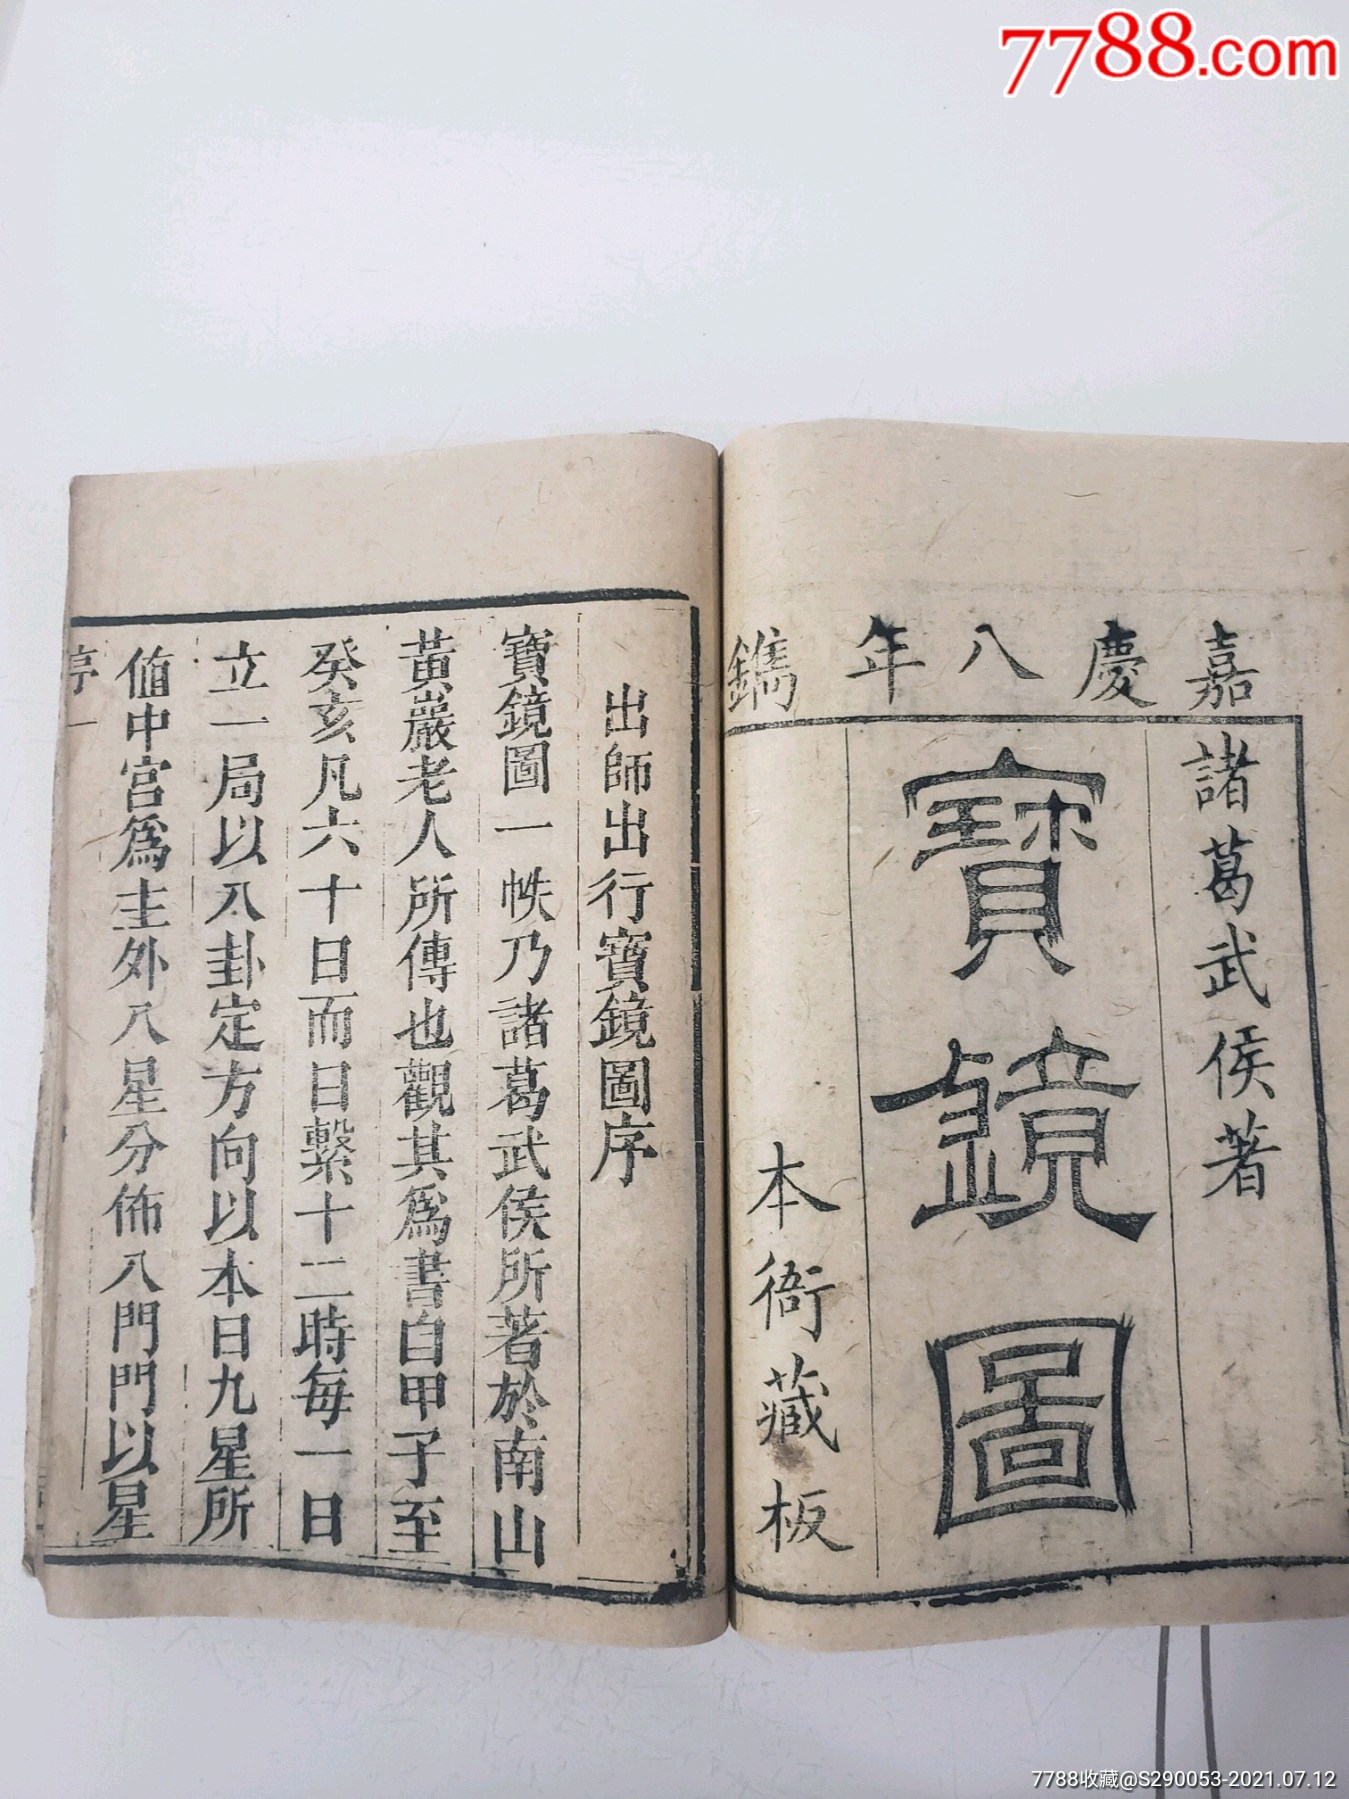 7788.com
嘉慶八年鐫
諸葛武侯著
寶鏡圖
本衙藏板
出師出行寶鏡圖序
寶鏡圖一帙乃諸葛武侯所著於南山
黃巖老人所傳也觀其爲書自甲子至
癸亥凡六十日而日繫十二時每一日
立一局以八卦定方向以本日九星所
值中宮爲主外八星分佈八門門以星
序一
7788收藏@S290053-2021.07.12